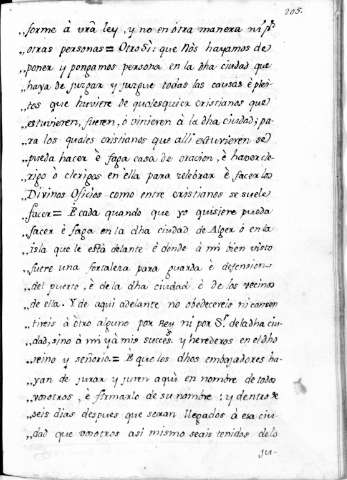 205.
forme à vrã ley, y no en otra manera ni pr.
„otras personas = Otro Sì: que Nòs hayamos de
„poner y pongamos persona en la dha ciudad que
„haya de juzgar y juzgue todas las causas è plei-
„tos que huviere de qualesquier cristianos que
„estuvieren, fueren, ò vinieren à la dha ciudad; pa-
„ra los quales cristianos que alli estuvieren se
„pueda hacer è faga casa de oracion, è haver cle-
„rigo ò clerigos en ella para celebrar è facer los
„Divinos Oficios como entre cristianos se suele
„facer = E cada quando que yo quisiere pueda
„facer è faga en la dha ciudad de Alger ò en la
„isla que le està delante è donde à mi bien visto
„fuere una fortaleza para guarda è defension
„del puerto, è de la dha ciudad è de los vecinos
„de ella. Y de aqui adelante no obedecereis ni consen-
„tireis à otro alguno por Rey ni por Sr. de la dha ciu-
„dad, sino à mi yà mis succes.s y herederos en el dho
„reino y señorio = E que los dhos embajadores ha-
„yan de jurar y juren aquì en nombre de todos
„vosotros, è firmarlo de su nombre: y dentro de
„seis dias despues que sean llegados à esa ciu-
„dad que vosotros asi mismo seais tenidos de lo
ju-